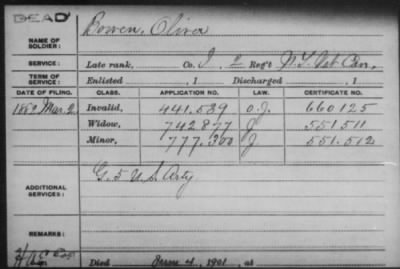 DEAD
NAME OF SOLDIER: Bowen, Oliver
SERVICE: Late rank, Co. I, 2 Reg't N.Y. Vet Cav,
TERM OF SERVICE: Enlisted , 1 Discharged , 1
DATE OF FILING. CLASS. APPLICATION NO. LAW. CERTIFICATE NO.
Mar. 2 Invalid, 441.539 O.J. 660125
Widow, 742877 J 551511
Minor, 777.300 J 551.512
ADDITIONAL SERVICES: G. 5 U.S. Arty
REMARKS:
Died June 4, 1901, at